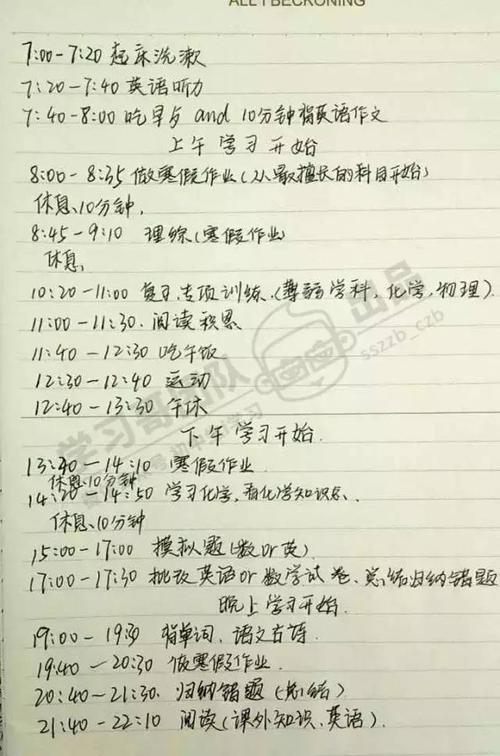 ALL I BECKONING
7:00-7:20 起床洗漱
7:20-7:40 英语听力
7:40-8:00 吃早点 and 10分钟背英语作文
上午学习开始
8:00-8:35 做寒假作业(从最擅长的科目开始)
休息10分钟,
8:45-9:10 理综(寒假作业)
休息,
10:20-11:00 复习专项训练(薄弱学科,化学,物理).
11:00-11:30. 阅读积累
11:40-12:30 吃午饭
12:30-12:40 运动
12:40-13:30 午休
下午学习开始.
13:30-14:10 寒假作业
休息10分钟
14:20-14:50 学习化学,看化学知识点.
休息10分钟
15:00-17:00 模拟题(数or英)
17:00-17:30 批改英语or数学试卷、总结归纳错题
晚上学习开始.
19:00-19:30 背单词、语文古诗.
19:40-20:30 做寒假作业.
20:40-21:30. 归纳错题(总结)
21:40-22:10 阅读(课外知识、英语).
学习哥团队 出品
sszzb_czb